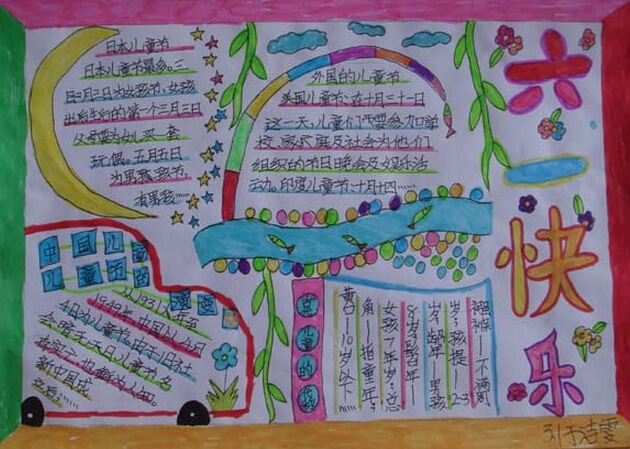 日本儿童节
日本儿童节最多。三
月三日为女孩节,女孩
出后生行的第一个三月三日
父母要为女儿买一套
玩偶。五月五日
为男孩孩节,
有男孩……
外国的儿童节
美国儿童节:在十月三十一日
这一天,儿童们都要参加学
校、家庭及社会为他们
组织的节日晚会及娱乐活
动。印度儿童节:十月十四……
六一快乐
中国儿童
儿童节的
演变
从1931年至
1949年,中国以4月
4日为儿童节,由于旧社
会
儿童节名
新中国成
立后……
儿童的
襁褓——不满周
岁;孩提——2-3
岁;龆年——男孩
8岁;髫年——
女孩7年岁;总
角——指童年;
黄口——10岁以下
刘于洁雯